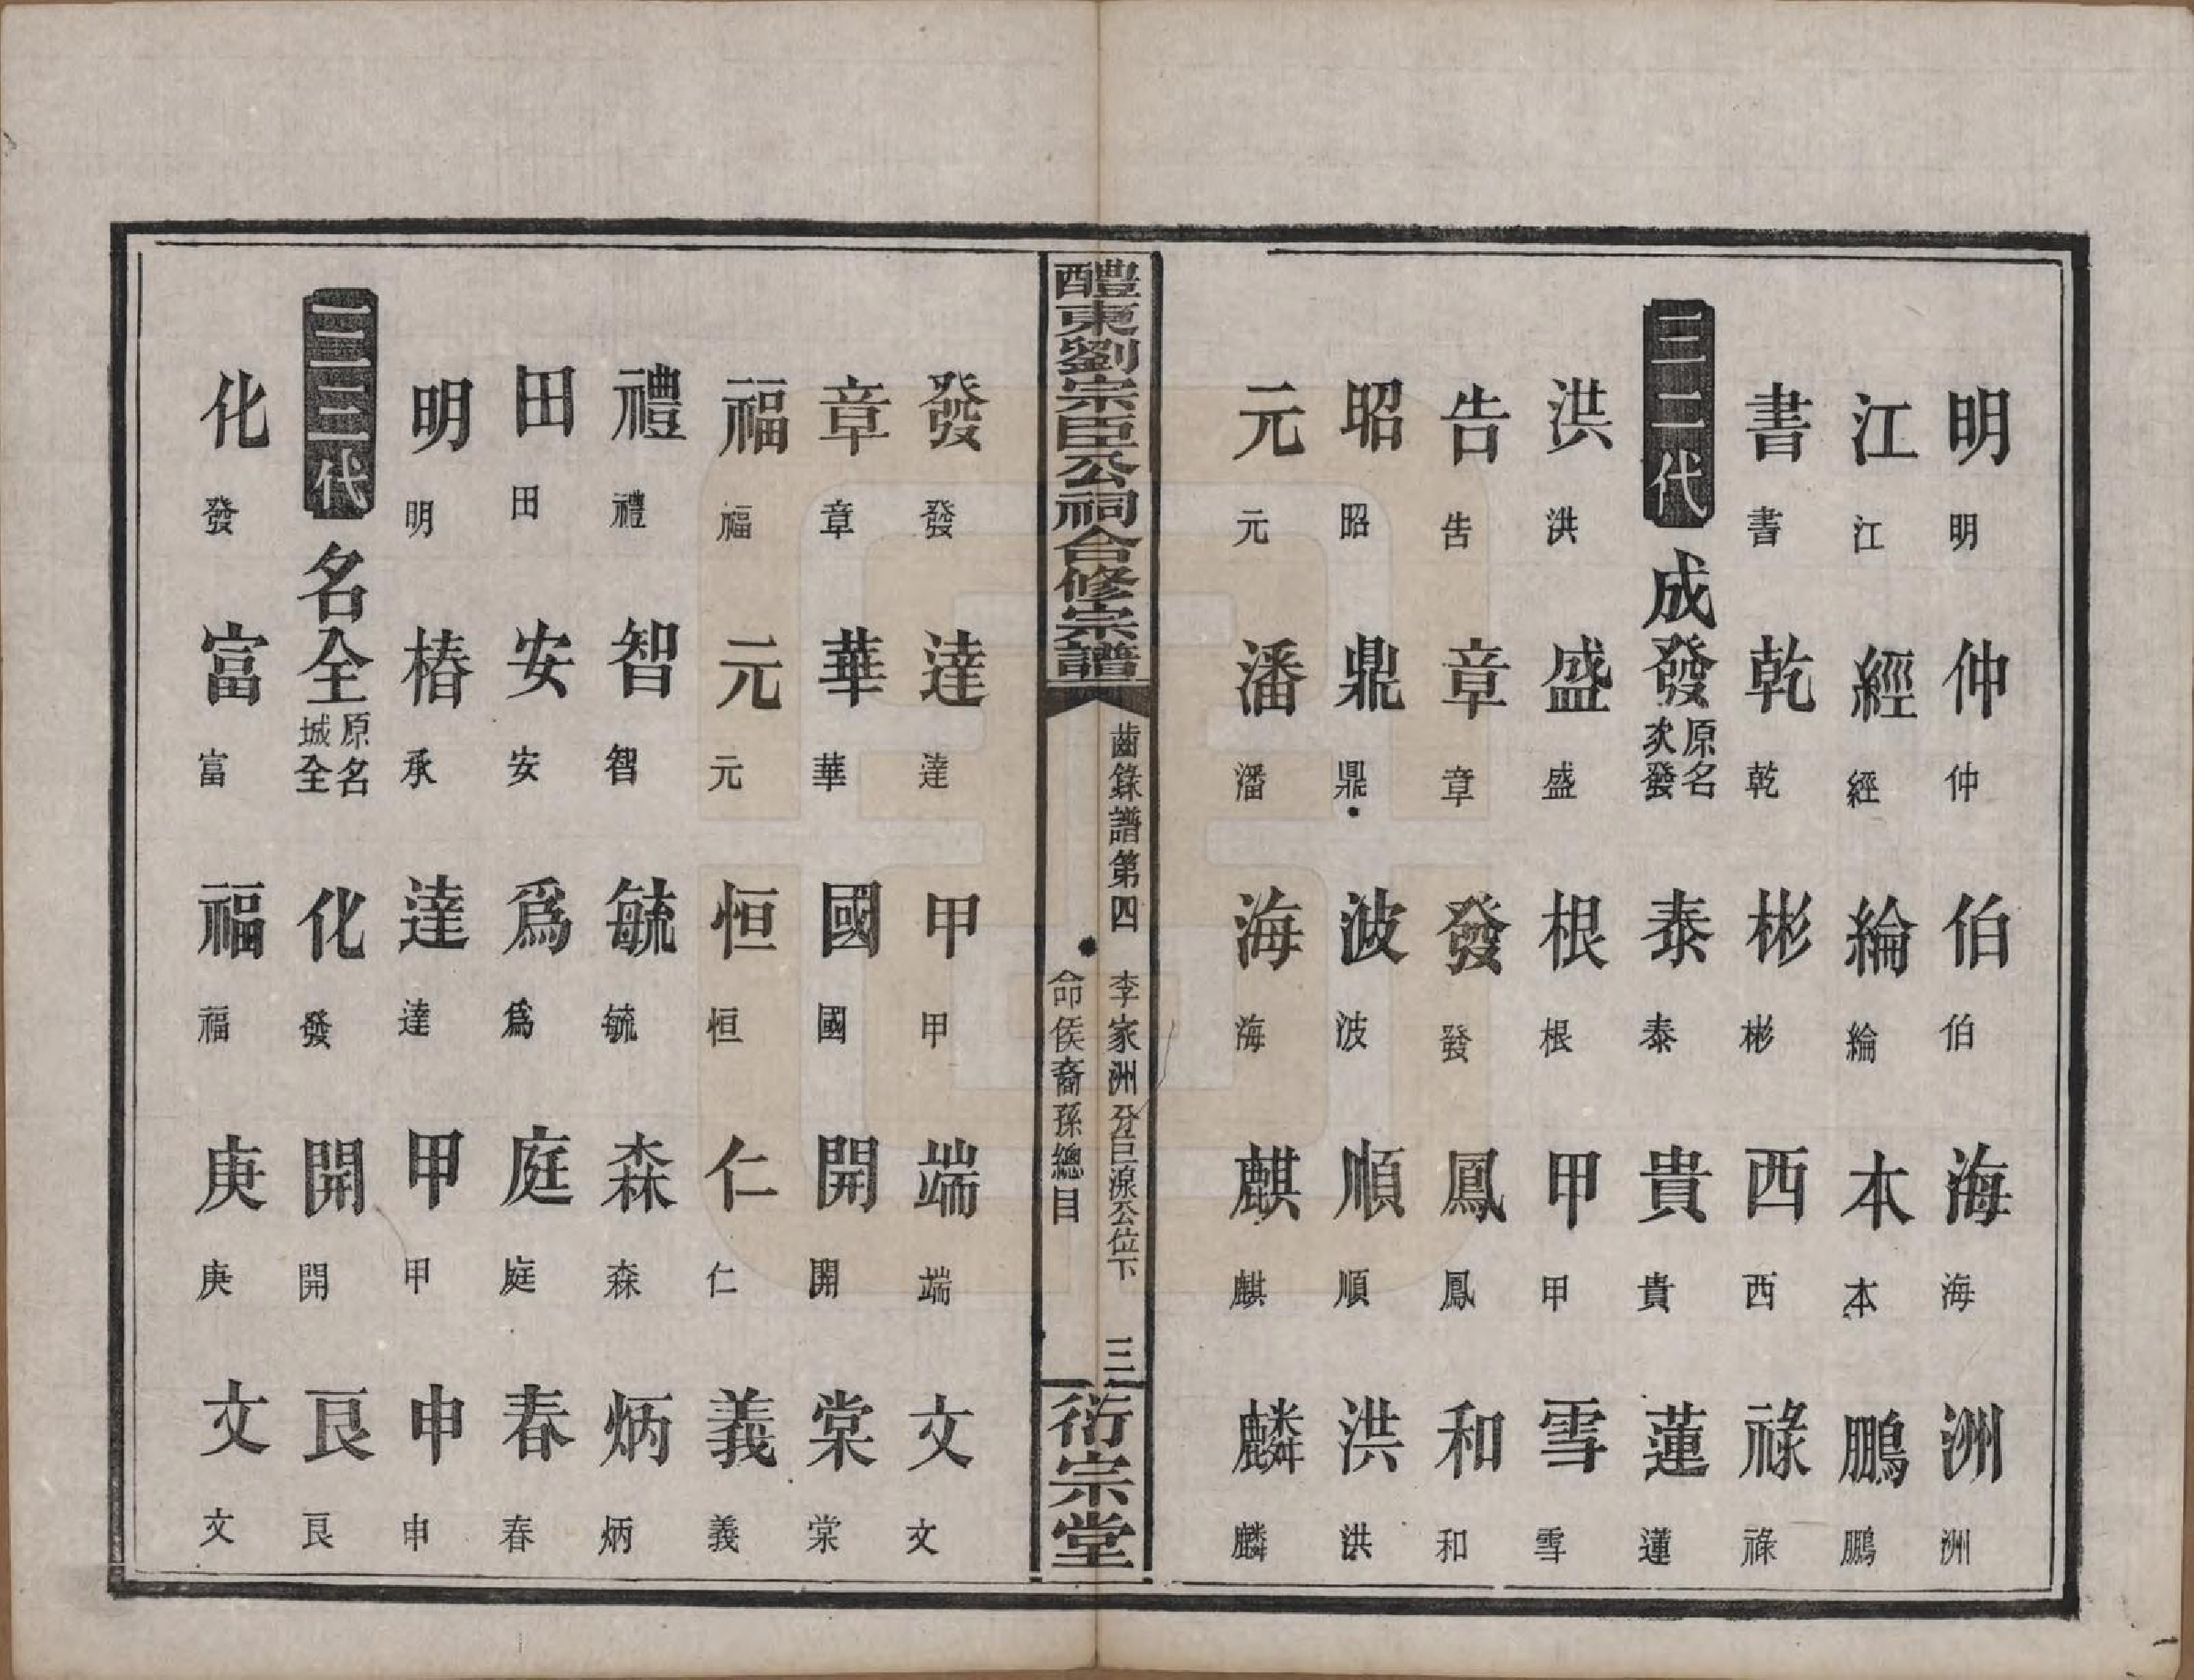 明 明 仲 仲 伯 伯 海 海 洲 洲
江 江 經 經 綸 綸 本 本 鵬 鵬
書 書 乾 乾 彬 彬 西 西 祿 祿
三二代 成發 原名次發 泰 泰 貴 貴 蓮 蓮
洪 洪 盛 盛 根 根 甲 甲 雪 雪
告 告 章 章 發 發 鳳 鳳 和 和
昭 昭 鼎 鼎 波 波 順 順 洪 洪
元 元 潘 潘 海 海 麒 麒 麟 麟
醴東劉宗臣公祠合修宗譜
齒錄譜第四 李家洲分巨源公位下 三
命侯裔孫總目
衍宗堂
發 發 達 達 甲 甲 端 端 文 文
章 章 華 華 國 國 開 開 棠 棠
福 福 元 元 恒 恒 仁 仁 義 義
禮 禮 智 智 毓 毓 森 森 炳 炳
田 田 安 安 爲 爲 庭 庭 春 春
明 明 椿 承 達 達 甲 甲 申 申
三三代 名全 原名城全 化 發 開 開 艮 艮
化 發 富 富 福 福 庚 庚 文 文